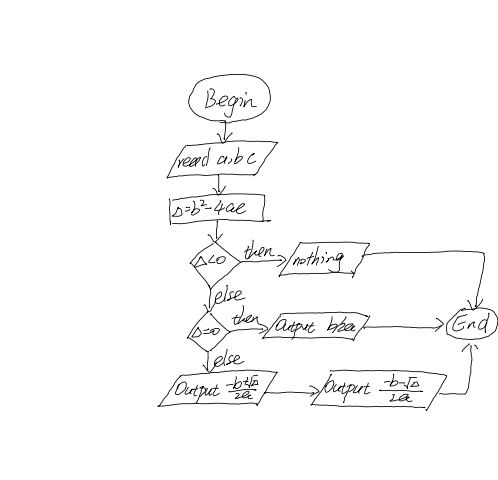 Begin
read a.b c
Δ=b²-4ac
Δ<0
then
nothing
else
Δ=0
then
Output b/2a
End
else
Output (-b+√Δ)/2a
Output (-b-√Δ)/2a